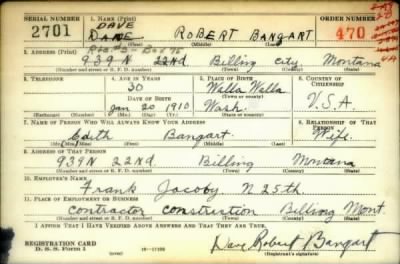 SERIAL NUMBER 1. NAME (Print) ORDER NUMBER
DAVE
2701 DANE ROBERT BANGART 470
(First) (Middle) (Last)
2. ADDRESS (Print) Rte. #2 - Box 75
939 N 22nd Billing City Montana
(Number and street or R. F. D. number) (Town) (County) (State)
3. TELEPHONE 4. AGE IN YEARS 5. PLACE OF BIRTH 6. COUNTRY OF CITIZENSHIP
30 Walla Walla
DATE OF BIRTH (Town or county)
Jan 20 1910 Wash. U.S.A.
(Exchange) (Number) (Mo.) (Day) (Yr.) (State or country)
7. NAME OF PERSON WHO WILL ALWAYS KNOW YOUR ADDRESS 8. RELATIONSHIP OF THAT PERSON
Edith Bangart Wife.
(Mr., Mrs., Miss) (First) (Middle) (Last)
9. ADDRESS OF THAT PERSON
939 N 22nd Billing Montana
(Number and street or R. F. D. number) (Town) (County) (State)
10. EMPLOYER'S NAME
Frank Jacoby N 25th
11. PLACE OF EMPLOYMENT OR BUSINESS
contractor construction Billiong Mont.
(Number and street or R. F. D. number) (Town) (County) (State)
I AFFIRM THAT I HAVE VERIFIED ABOVE ANSWERS AND THAT THEY ARE TRUE.
REGISTRATION CARD
D. S. S. Form 1 16—17105 Dave Robert Bangart
(Registrant's signature)